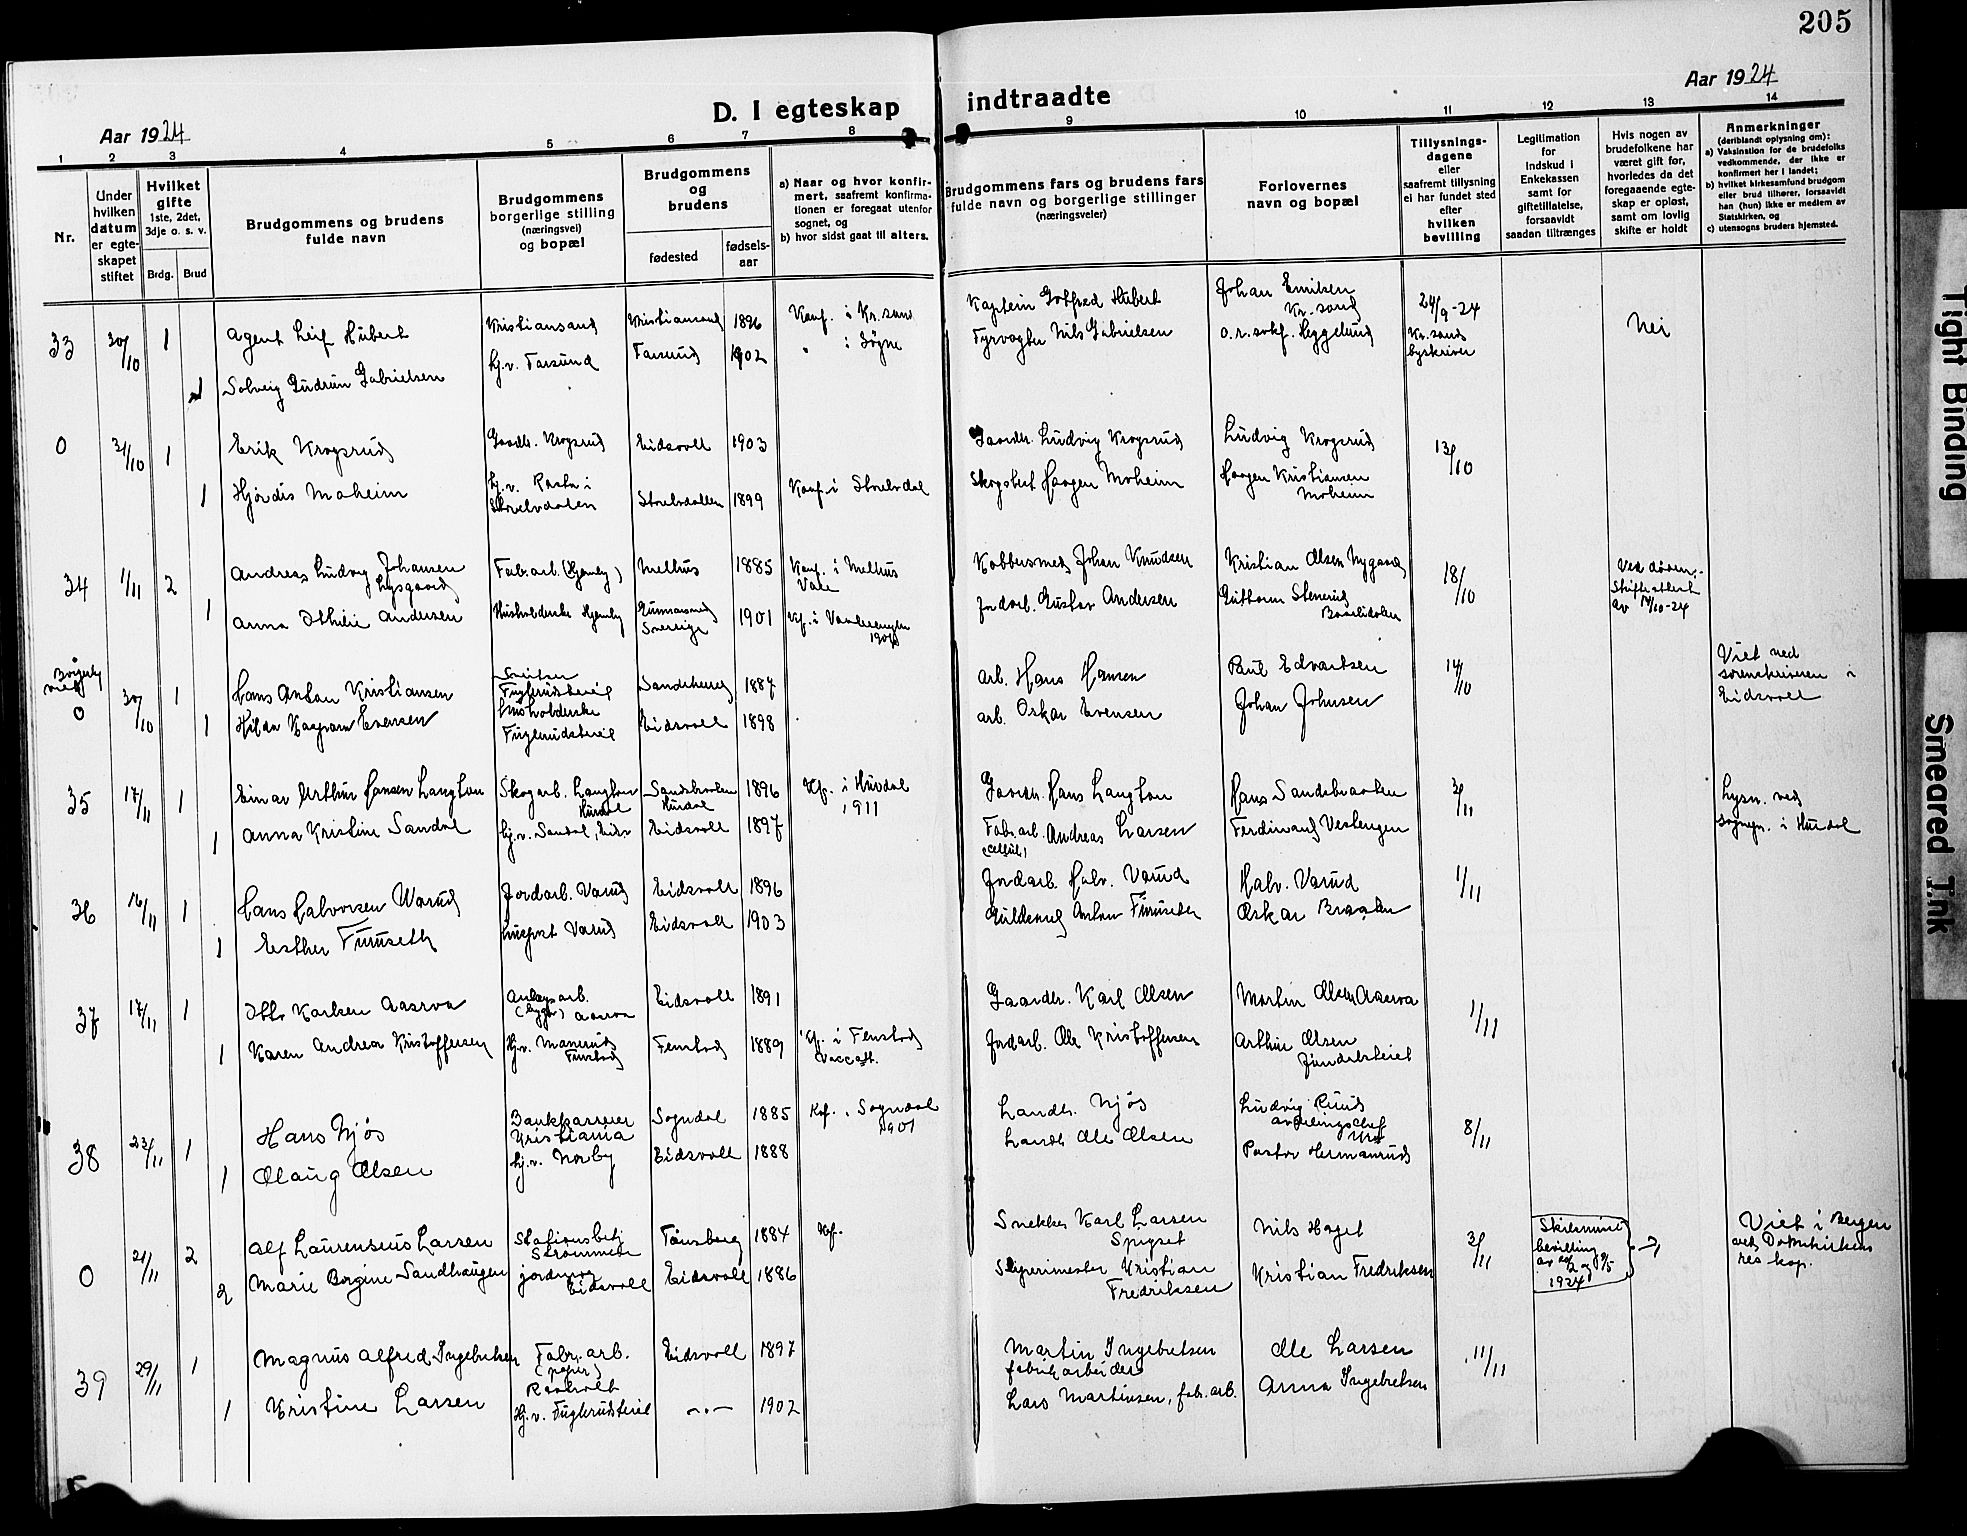 205
Aar 1924
Aar 1924
D. I egteskap indtraadte
1 2 3 4 5 6 7 8 9 10 11 12 13 14
Nr.
Under hvilken datum er egteskapet stiftet
Hvilket gifte
1ste, 2det, 3dje o. s. v.
Brdg. Brud
Brudgommens og brudens fulde navn
Brudgommens borgerlige stilling (næringsvei) og bopæl
Brudgommens og brudens
fødested
fødsels-aar
a) Naar og hvor konfirmert, saafremt konfirmationen er foregaat utenfor sognet, og
b) hvor sidst gaat til alters.
Brudgommens fars og brudens fars fulde navn og borgerlige stillinger (næringsveier)
Forlovernes navn og bopæl
Tillysningsdagene eller saafremt tillysning ei har fundet sted efter hvilken bevilling
Legitimation for Indskud i Enkekassen samt for giftetillatelse, forsaavidt saadan tiltrænges
Hvis nogen av brudefolkene har været gift før, hvorledes da det foregaaende egteskap er opløst, samt om lovlig skifte er holdt
Anmerkninger
(deriblandt oplysning om):
a) Vaksination for de brudefolks vedkommende, der ikke er konfirmert her i landet;
b) hvilket kirkesamfund brudgom eller brud tilhører, forsaavidt han (hun) ikke er medlem av Statskirken, og
c) utensogns bruders hjemsted.
33 30/10 1 Agent Leif Hubert Kristiansand Kristiansand 1896 Konf. i Kr.sand Kaptein Gotfred Hubert Johan Emilsen Kr.sand 24/9-24 Kr.sands byskriver Nei
1 Solveig Gudrun Gabrielsen hj.v. Farsund Farsund 1902 " i Søgne Fyrvogter Nils Gabrielsen o.r.sakf. Heggelund
0 31/10 1 Erik Krogsrud Gaardbr. Krogsrud Eidsvoll 1903 Gaardbr. Ludvig Krogsrud Ludvig Krogsrud 13/10
1 Hjørdis Moheim hj.v. i Storelvdalen Storelvdalen 1899 Konf. i Storelvdal Haagen Moheim Haagen Kristiansen Moheim
34 1/11 2 Andreas Ludvig Johansen Lysgaard Fab.arb. Melhus 1885 Konf. i Melhus Kobbersmed Johan Knudsen Kristian Olsen Nygaard 18/10 Ved døden. Skifteattest av 14/10-24
1 Anna Othilie Andersen Husholderske Sverige 1901 Kf. i Vaalerengen Jordarb. Gustav Andersen Guttorm Stenerud
Borgerlig viet 0 30/10 1 Hans Anton Kristiansen Fuglerudsteiet Sandeherred 1887 arb. Hans Hansen Paul Edvartsen 14/10 Viet ved sorenskriveren i Eidsvoll
1 Hilda Evensen husholderske Fuglerudsteiet Eidsvoll 1898 arb. Oskar Evensen Johan Johnsen
35 17/11 1 Einar Arthur Hansen Langton Skogarb. Langton Hurdal Hurdal 1896 Kf. i Hurdal 1911 Gaardbr. Hans Langton Hans Sandsbraaten 3/11 Lysn. ved sognepr. i Hurdal
1 Anna Kristine Sandal hj.v. Sandal, Eidsv Eidsvoll 1897 Fab.arb. Andreas Larsen (cellul) Ferdinand Vestengen
36 16/11 1 Hans Halvorsen Warud Jordarb. Varud Eidsvoll 1896 Jordarb. Halv. Varud Halv. Varud 1/11
1 Esther Furuseth Varud Eidsvoll 1903 Anton Furuseter Oskar Braaten
37 17/11 1 Otto Karlsen Aasrva Anlegsarb. Eidsvoll 1891 Gaardbr. Karl Olsen Martin Olsen 1/11
1 Karen Andrea Kristoffersen hj.v. Fenstad Fenstad 1889 Kf. i Fenstad Vaccatt. Jordarb. Ole Kristoffersen Arthur Olsen
38 23/11 1 Hans Njøs Bankkasserer Kristiania Sogndal 1885 Kof. i Sogndal 1901 Landh. Njøs Ludvig Ruud avdelingschef 8/11
1 Olaug Olsen hj.v. Norby Eidsvoll 1888 Landh. Ole Olsen Pastor Hermanrud
0 21/11 2 Alf Laurensius Larsen Stationsbetj. Strømmen Tønsberg 1884 Kof. Snekker Karl Larsen Nils Haget 3/11 Skilsmisse bevilling 1924 Viet i Bergen ved Domkirkens res kap.
2 Marie Bergine Sandhaugen jordmor Eidsvoll Eidsvoll 1886 Sliperimester Kristian Fredriksen Kristian Fredriksen
39 29/11 1 Magnus Alfred Ingebretsen Fabr. arb. (papir) Eidsvoll 1897 Martin Ingebretsen fabrikarbeider Ole Larsen 11/11
1 Kristine Larsen Hj.v. Fuglerudsteiet -"- 1902 Lars Martinsen, fab. arb. Anna Ingebretsen
Tight Binding
Smeared Ink